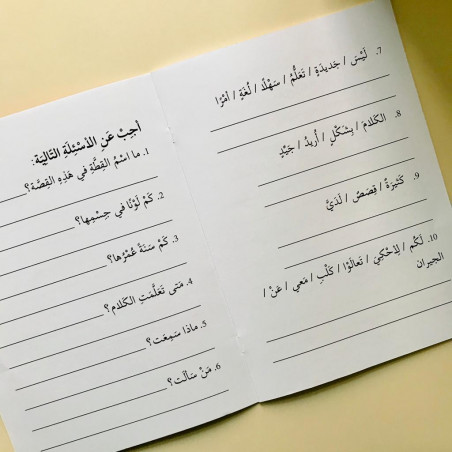 أَجِبْ عَنِ الأَسْئِلَةِ التَّالِيَة:
1. ما اسْمُ القِطَّةِ في هَذِهِ القِصَّة؟
2. كَمْ لَوْنًا في جِسْمِها؟
3. كَمْ سَنَةً عُمْرُها؟
4. مَتى تَعَلَّمَتِ الكَلام؟
5. ماذا سَمِعَت؟
6. مَنْ سَأَلَت؟
7. لَيْسَ / جَديدَةٍ / تَعَلُّمُ / سَهْلًا / لُغَةٍ / أَمْرًا
8. الكَلامَ / بِشَكْلٍ / أُريدُ / جَيِّدٍ
9. كَثيرَةٌ / قِصَصٌ / لَدَيَّ
10. لَكُم / لِأَحْكِيَ / تَعالَوْا / كَلْبِ / مَعي / عَنْ /
الجيران